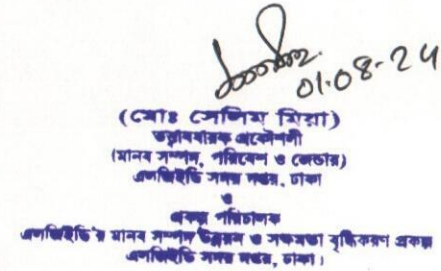 01-08-24
(মোঃ সেলিম মিয়া)
তত্ত্বাবধায়ক প্রকৌশলী
(মানব সম্পদ, পরিবেশ ও জেন্ডার)
এলজিইডি সদর দপ্তর, ঢাকা
ও
প্রকল্প পরিচালক
এলজিইডি'র মানব সম্পদ উন্নয়ন ও সক্ষমতা বৃদ্ধিকরণ প্রকল্প
এলজিইডি সদর দপ্তর, ঢাকা।